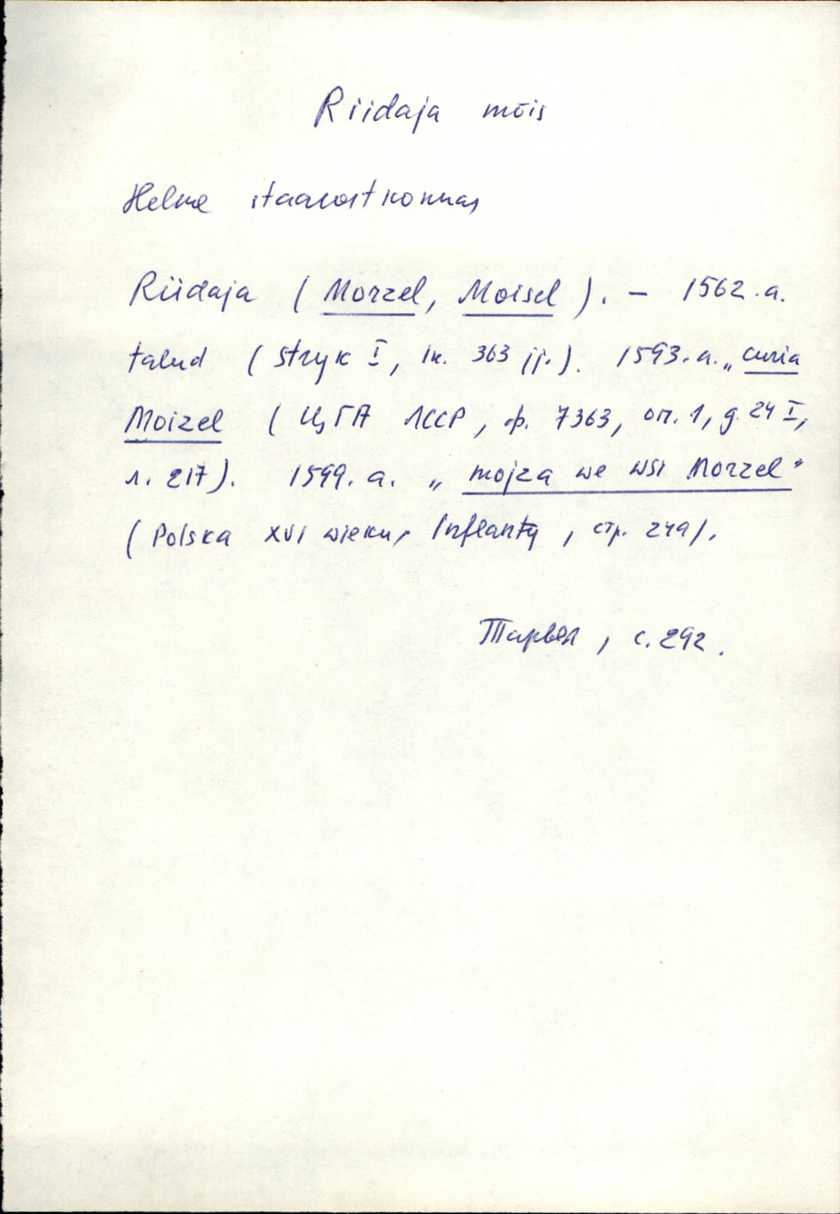 Riidaja mõis
Helme staarostkonnas
Riidaja (Morzel, Moisel). – 1562.a.
talud (Stryk I, lk. 363 jj.). 1593.a. „curia
Moizel (ЦГА ЛССР, ф. 7363, оп. 1, д. 24 I,
л. 217). 1599. a. „mojza we wsi Morzel"
(Polska XVI wieku, Inflanty, стр. 249).
Тарвел, с. 292.